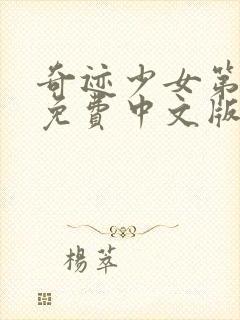 奇迹少女第
免費中文版
楊萃